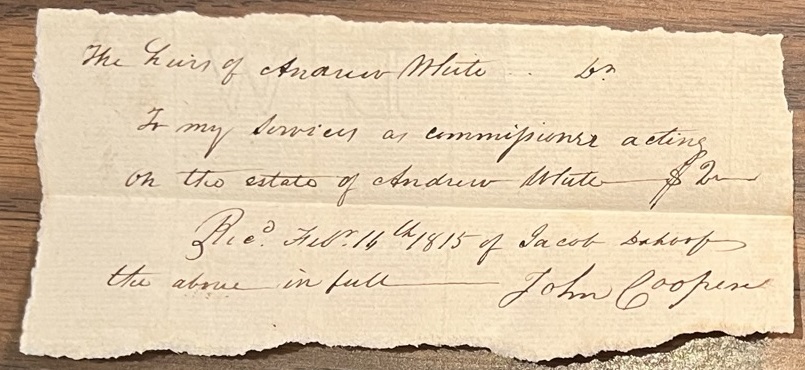 The heirs of Andrew White Dr.
To my services as commissioner acting
on the estate of Andrew White $2
Recd. Febr. 16th 1815 of Jacob
the above in full John Cooper